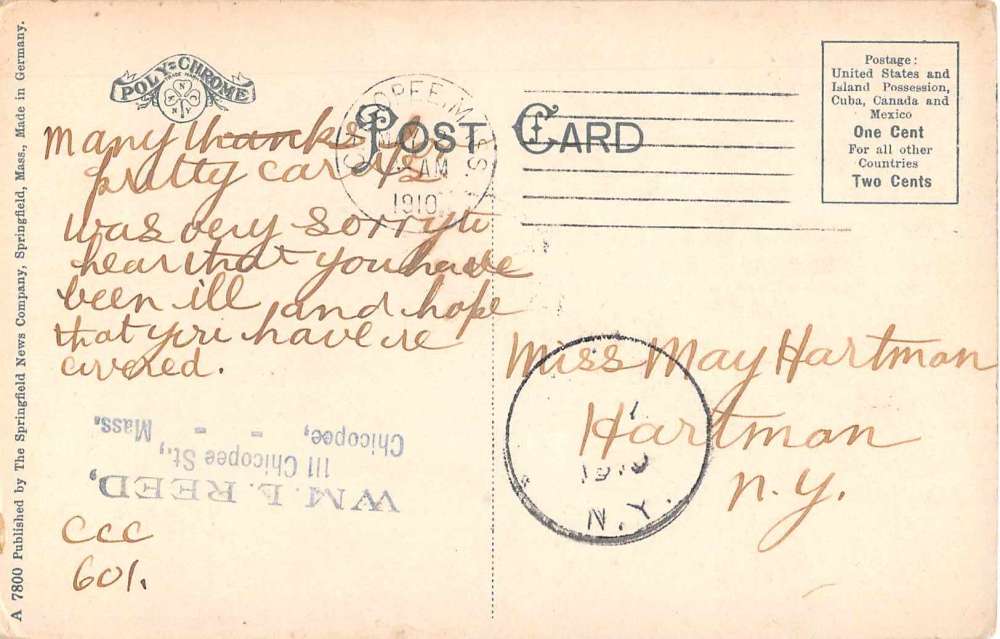 A 7800 Published by The Springfield News Company, Springfield, Mass., Made in Germany.
POLY-CHROME
TRADE MARK
POST CARD
Postage:
United States and
Island Possession,
Cuba, Canada and
Mexico
One Cent
For all other
Countries
Two Cents
CHICOPEE, MASS
AM
1910
Many thanks for
pretty cards
was very sorry to
hear that you have
been ill and hope
that you have re
covered.
WM. E. REED,
111 Chicopee St.,
Chicopee, - - Mass.
CCC
601.
Miss May Hartman
Hartman
N.Y.
1
1910
N.Y.